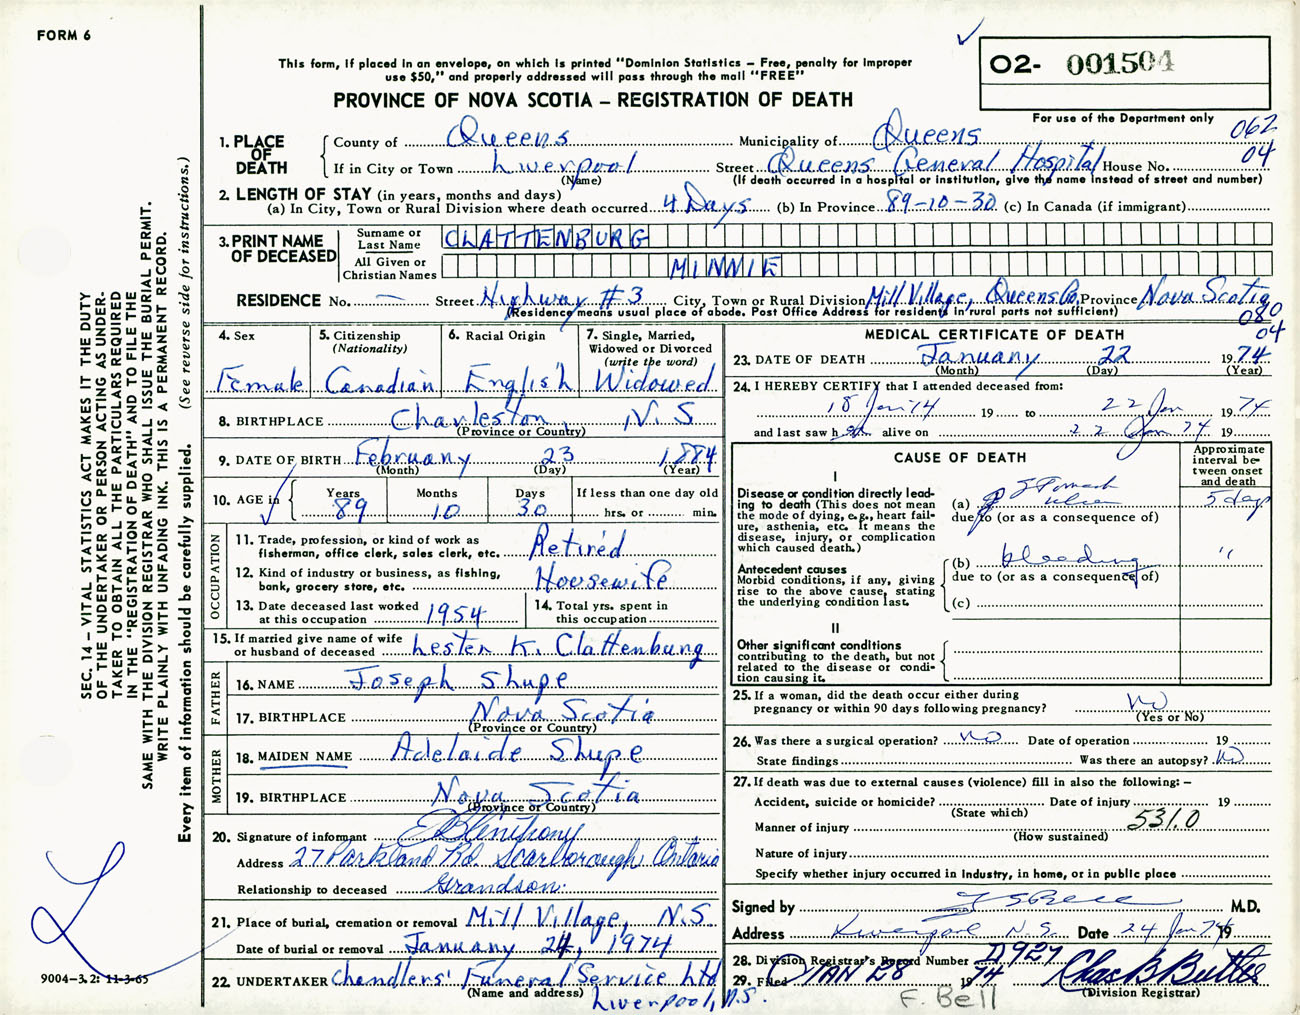 FORM 6
This form, if placed in an envelope, on which is printed "Dominion Statistics – Free, penalty for improper
use $50," and properly addressed will pass through the mail "FREE"
PROVINCE OF NOVA SCOTIA – REGISTRATION OF DEATH
02- 001504
For use of the Department only
062
04
1. PLACE OF DEATH
County of Queens Municipality of Queens
If in City or Town Liverpool Street Queens General Hospital House No.
(Name) (If death occurred in a hospital or institution, give the name instead of street and number)
2. LENGTH OF STAY (in years, months and days)
(a) In City, Town or Rural Division where death occurred 4 Days (b) In Province 89-10-30 (c) In Canada (if immigrant)
3. PRINT NAME OF DECEASED
Surname or Last Name CLATTENBURG
All Given or Christian Names MINNIE
RESIDENCE No. — Street Highway #3 City, Town or Rural Division Mill Village, Queens Co. Province Nova Scotia
(Residence means usual place of abode. Post Office Address for residents in rural parts not sufficient)
080
04
4. Sex
Female
5. Citizenship
(Nationality)
Canadian
6. Racial Origin
English
7. Single, Married,
Widowed or Divorced
(write the word)
Widowed
8. BIRTHPLACE Charleston, N.S
(Province or Country)
9. DATE OF BIRTH February 23 1884
(Month) (Day) (Year)
10. AGE in
Years Months Days If less than one day old
89 10 30 hrs. or min.
OCCUPATION
11. Trade, profession, or kind of work as
fisherman, office clerk, sales clerk, etc. Retired
12. Kind of industry or business, as fishing,
bank, grocery store, etc. Housewife
13. Date deceased last worked
at this occupation 1954
14. Total yrs. spent in
this occupation
15. If married give name of wife
or husband of deceased Lester K. Clattenburg
FATHER
16. NAME Joseph Shupe
17. BIRTHPLACE Nova Scotia
(Province or Country)
MOTHER
18. MAIDEN NAME Adelaide Shupe
19. BIRTHPLACE Nova Scotia
(Province or Country)
20. Signature of informant
Address 27 Parkland Rd. Scarborough Ontario
Relationship to deceased Grandson
21. Place of burial, cremation or removal Mill Village, N.S.
Date of burial or removal January 24, 1974
22. UNDERTAKER Chandlers' Funeral Service Ltd
(Name and address) Liverpool, N.S.
MEDICAL CERTIFICATE OF DEATH
23. DATE OF DEATH January 22 1974
(Month) (Day) (Year)
24. I HEREBY CERTIFY that I attended deceased from:
18 Jan 74 19 to 22 Jan 1974
and last saw her alive on 22 Jan 74 19
CAUSE OF DEATH
Approximate
interval be-
tween onset
and death
I
Disease or condition directly lead-
ing to death (This does not mean
the mode of dying, e.g., heart fail-
ure, asthenia, etc. It means the
disease, injury, or complication
which caused death.)
(a) Stomach ulcer 5 days
due to (or as a consequence of)
Antecedent causes
Morbid conditions, if any, giving
rise to the above cause, stating
the underlying condition last.
(b) bleeding "
due to (or as a consequence of)
(c)
II
Other significant conditions
contributing to the death, but not
related to the disease or condi-
tion causing it.
25. If a woman, did the death occur either during
pregnancy or within 90 days following pregnancy? No
(Yes or No)
26. Was there a surgical operation? No Date of operation 19
State findings Was there an autopsy? No
27. If death was due to external causes (violence) fill in also the following: –
Accident, suicide or homicide? Date of injury 19
(State which)
Manner of injury 531.0
(How sustained)
Nature of injury
Specify whether injury occurred in industry, in home, or in public place
Signed by M.D.
Address Liverpool N.S. Date 24 Jan 74 19
28. Division Registrar's Record Number D927
29. Filed JAN 28 1974
(Division Registrar)
F. Bell
SEC. 14 – VITAL STATISTICS ACT MAKES IT THE DUTY
OF THE UNDERTAKER OR PERSON ACTING AS UNDER-
TAKER TO OBTAIN ALL THE PARTICULARS REQUIRED
IN THE "REGISTRATION OF DEATH" AND TO FILE THE
SAME WITH THE DIVISION REGISTRAR WHO SHALL ISSUE THE BURIAL PERMIT.
WRITE PLAINLY WITH UNFADING INK. THIS IS A PERMANENT RECORD.
Every item of information should be carefully supplied. (See reverse side for instructions.)
9004–3.2: 11-3-65